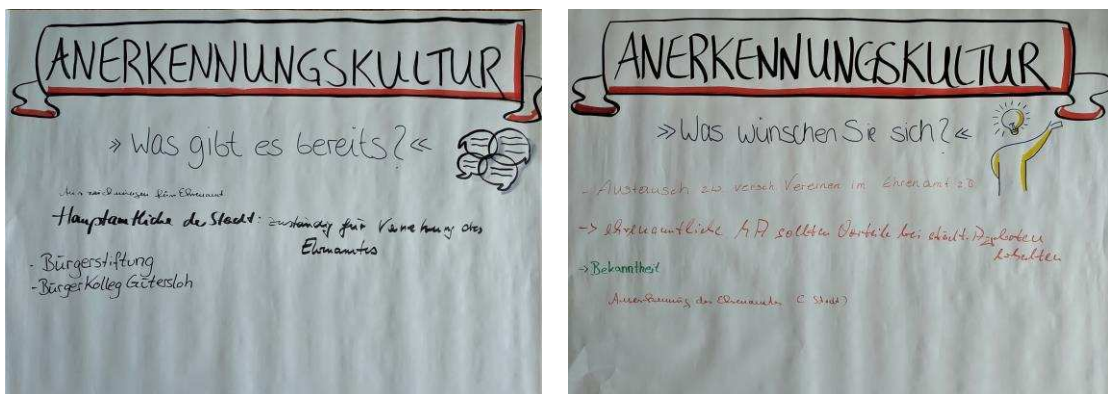 ANERKENNUNGSKULTUR
» Was gibt es bereits? «
für Ehrenamt
Hauptamtliche der Stadt: zuständig für Vernetzung des
Ehrenamtes
- Bürgerstiftung
- Bürgerkolleg Gütersloh
ANERKENNUNGSKULTUR
» Was wünschen Sie sich? «
- Austausch zw. versch Vereinen im Ehrenamt
-> ehrenamtliche MA sollten Vorteile bei städt. Angeboten
erhalten
-> Bekanntheit
Anerkennung des Ehrenamtes (Stadt)